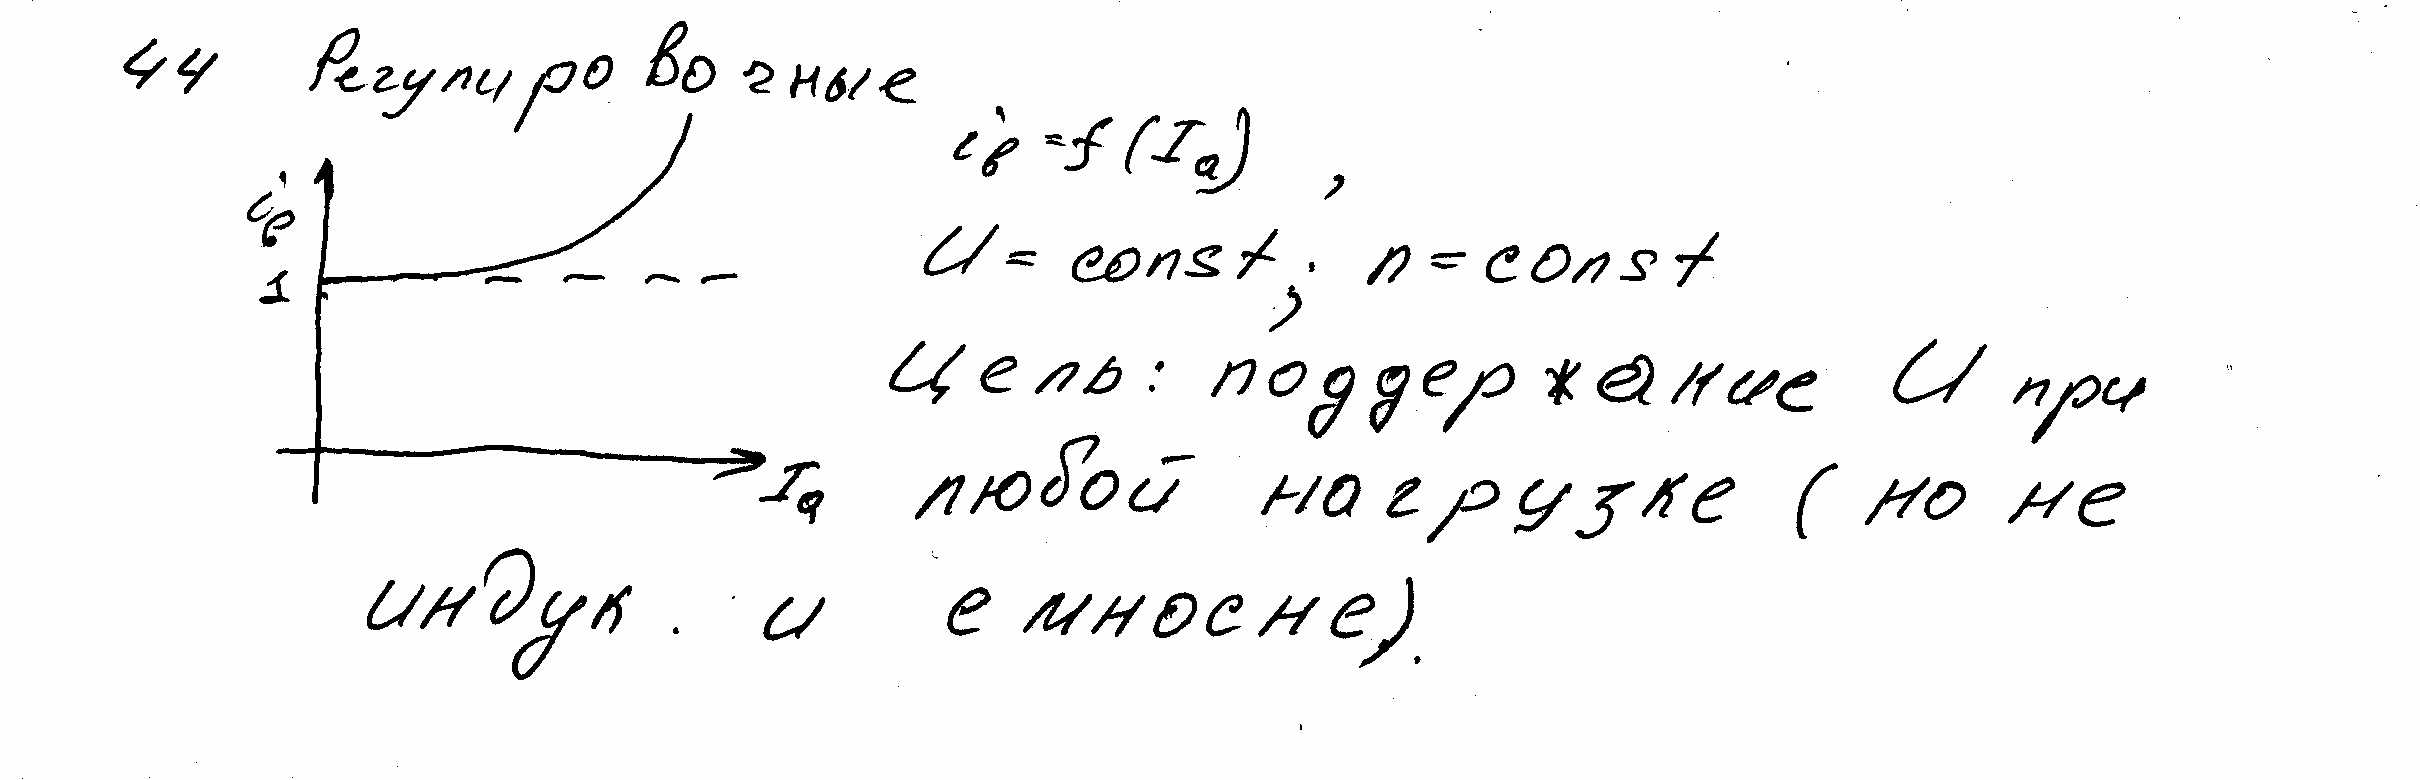 44 Регулировочные
i_в = f(I_a) ,
i_в
U = const; n = const
1
Цель: поддержание U при
I_a
любой нагрузке (но не
индук. и емносне).